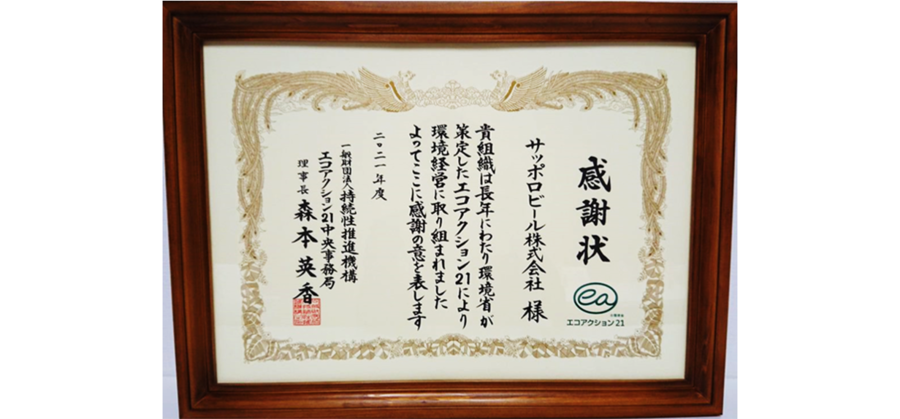 感謝状
サッポロビール株式会社 様
貴組織は長年にわたり環境省が
策定したエコアクション21により
環境経営に取り組まれました
よってここに感謝の意を表します
二〇二一年度
一般財団法人持続性推進機構
エコアクション21中央事務局
理事長 森本英香
ea
エコアクション21